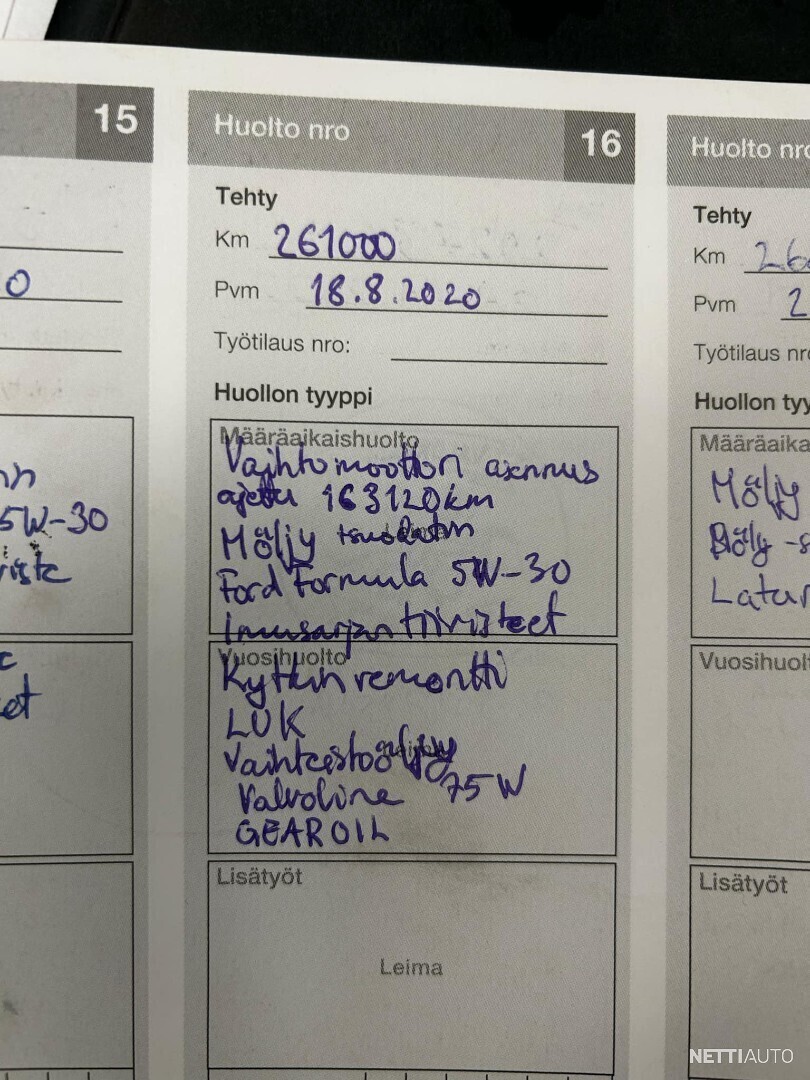 15
0
nn
5W-30
iste
et
Huolto nro 16
Tehty
Km 261000
Pvm 18.8.2020
Työtilaus nro:
Huollon tyyppi
Määräaikaishuolto
Vaihtomoottori asennus
ajettu 163120km
Möljy +suodatin
Ford Formula 5W-30
Imusarjan tiivisteet
Vuosihuolto
Kytkin remontti
LUK
Vaihteistoöljy
Valvoline 75W
GEAR OIL
Lisätyöt
Leima
Huolto nro
Tehty
Km 26
Pvm 2
Työtilaus nr
Huollon tyy
Määräaika
Möljy
Latur
Vuosihuolt
Lisätyöt
NETTIAUTO